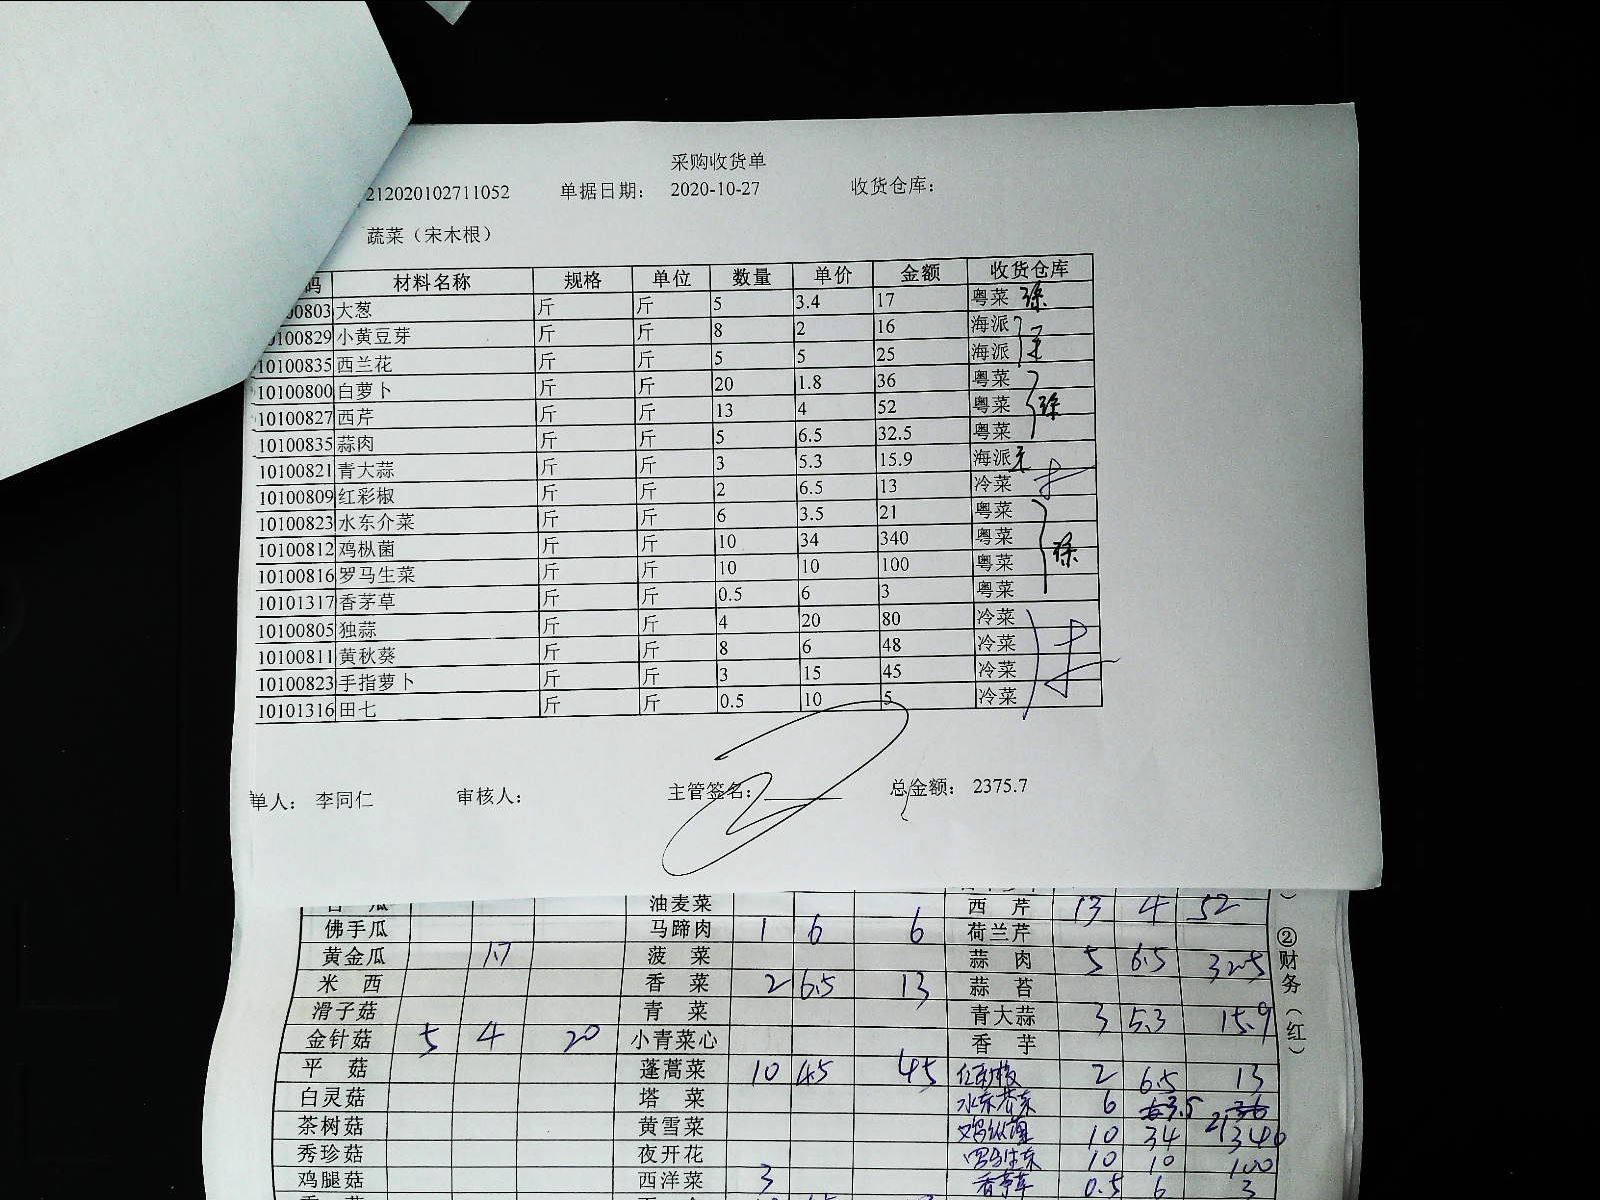 采购收货单
212020102711052 单据日期： 2020-10-27 收货仓库：
蔬菜（宋木根）
码 材料名称 规格 单位 数量 单价 金额 收货仓库
00803 大葱 斤 斤 5 3.4 17 粤菜
0100829 小黄豆芽 斤 斤 8 2 16 海派
10100835 西兰花 斤 斤 5 5 25 海派
10100800 白萝卜 斤 斤 20 1.8 36 粤菜
10100827 西芹 斤 斤 13 4 52 粤菜
10100835 蒜肉 斤 斤 5 6.5 32.5 粤菜
10100821 青大蒜 斤 斤 3 5.3 15.9 海派
10100809 红彩椒 斤 斤 2 6.5 13 冷菜
10100823 水东介菜 斤 斤 6 3.5 21 粤菜
10100812 鸡枞菌 斤 斤 10 34 340 粤菜
10100816 罗马生菜 斤 斤 10 10 100 粤菜
10101317 香茅草 斤 斤 0.5 6 3 粤菜
10100805 独蒜 斤 斤 4 20 80 冷菜
10100811 黄秋葵 斤 斤 8 6 48 冷菜
10100823 手指萝卜 斤 斤 3 15 45 冷菜
10101316 田七 斤 斤 0.5 10 5 冷菜
单人： 李同仁 审核人： 主管签名： 总金额： 2375.7
油麦菜 西芹 13 4 52
佛手瓜 马蹄肉 1 6 6 荷兰芹
黄金瓜 1.7 菠菜 蒜肉 5 6.5 32.5
米西 香菜 2 6.5 13 蒜苔
滑子菇 青菜 青大蒜 3 5.3 15.9
金针菇 5 4 20 小青菜心 香芋
平菇 蓬蒿菜 10 4.5 45 红彩椒 2 6.5 13
白灵菇 塔菜 水东芥菜 6 3.5 21
茶树菇 黄雪菜 鸡枞菌 10 34 340
秀珍菇 夜开花 罗马生菜 10 10 100
鸡腿菇 西洋菜 3 香茅草 0.5 6 3
②财务（红）